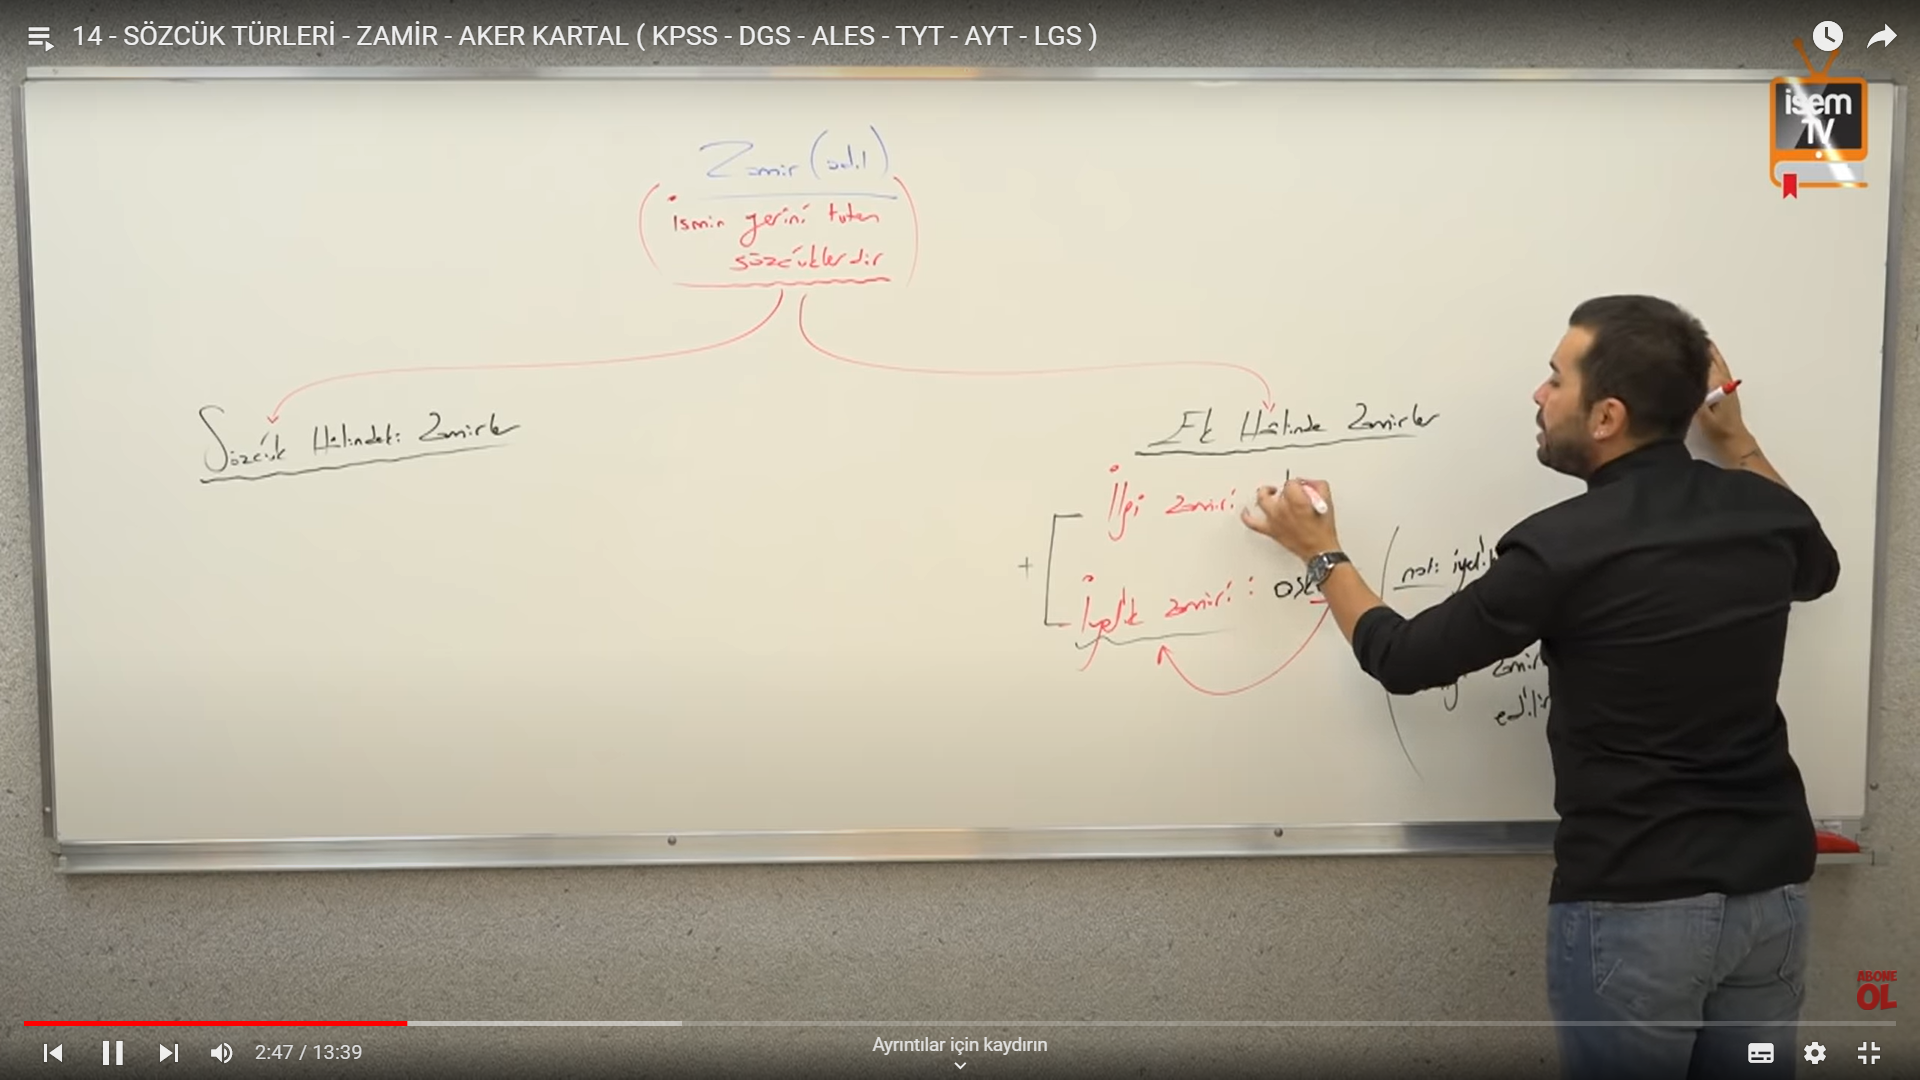 14 - SÖZCÜK TÜRLERİ - ZAMİR - AKER KARTAL ( KPSS - DGS - ALES - TYT - AYT - LGS )
isem
TV
Zamir (adıl)
İsmin yerini tutan
sözcüklerdir
Sözcük Hâlindeki Zamirler
Ek Hâlinde Zamirler
İlgi zamiri
+
İyelik zamiri :
not:
ABONE
OL
2:47 / 13:39
Ayrıntılar için kaydırın